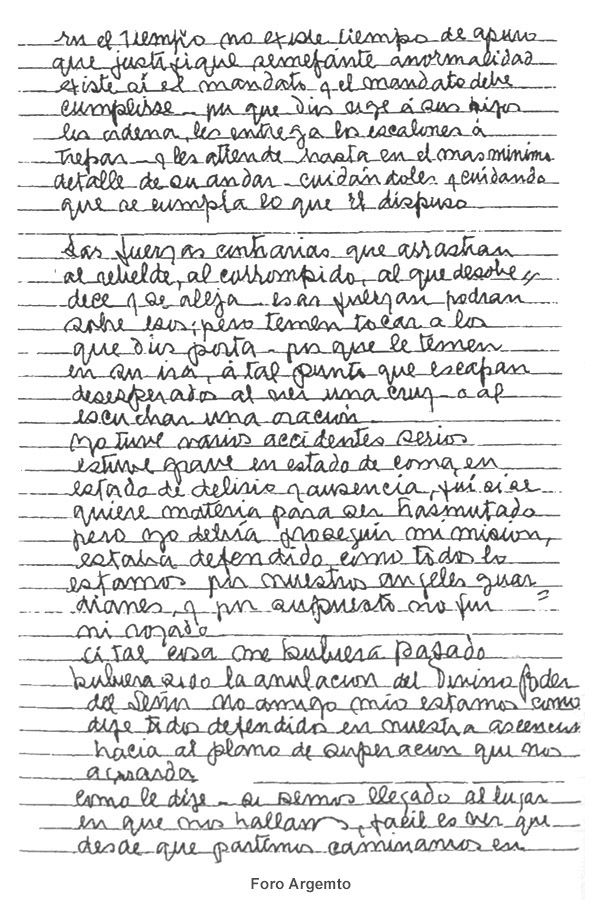 en el tiempo no existe tiempo de apuro
que justifique semejante anormalidad
existe si el mandato y el mandato debe
cumplirse - por que dios elige a sus hijos
les ordena, les entrega los escalones á
trepar - y les atiende hasta en el mas minimo
detalle de su andar - cuidandoles y cuidando
que se cumpla lo que El dispuso
Las fuerzas contrarias que arrastran
al rebelde, al corrompido, al que desobe
dece y se aleja - esas fuerzan podran
sobre esos; pero temen tocar a los
que dios porta - por que le temen
en su ira, á tal punto que escapan
desesperados al ver una cruz - o al
escuchar una oración
yo tuve varios accidentes serios
estuve grave en estado de coma, en
estado de delirio y ausencia, fuí si se
quiere materia para ser trasmutado
pero yo debía proseguir mi mision,
estaba defendido como todos lo
estamos por nuestros angeles guar
dianes, y por supuesto no fui
ni rozado
si tal cosa me hubiera pasado
hubiera sido la anulacion del Divino Poder
del Señor no amigo mio estamos como
dije todos defendido en nuestra ascencion
hacia al plano de superacion que nos
como le dije - si hemos llegado al lugar
en que nos hallamos, facil es ver que
desde que partimos caminamos en
Foro Argemto